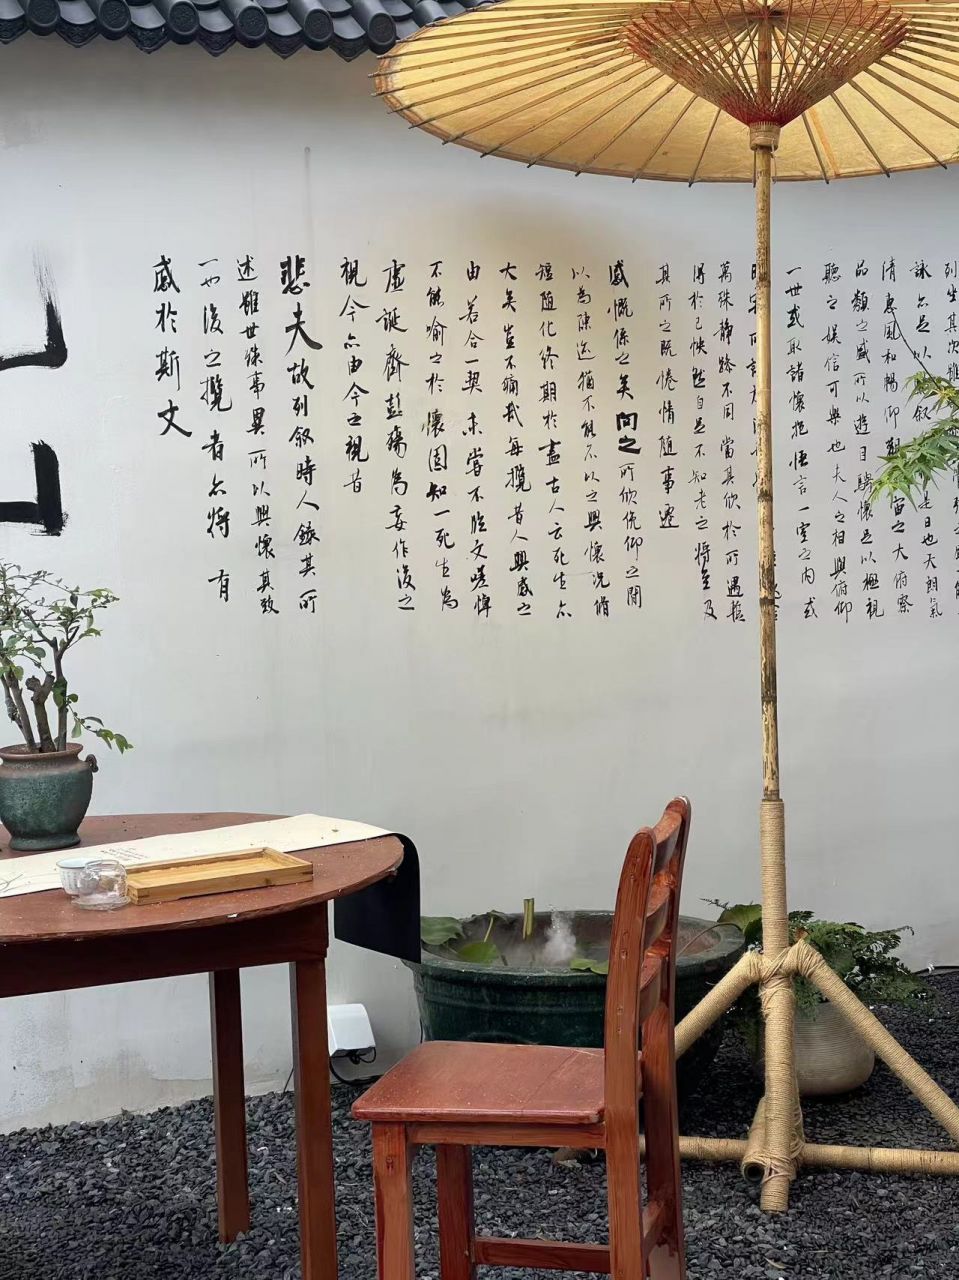 列坐其次雖
詠亦足以叙是日也天朗氣
清惠風和暢仰觀宙之大俯察
品類之盛所以遊目騁懷足以極視
聽之娛信可樂也夫人之相與俯仰
一世或取諸懷抱悟言一室之內或
萬殊靜躁不同當其欣於所遇暫
得於己快然自足不知老之將至及
其所之既惓情隨事遷
感慨係之矣向之所欣俛仰之閒
以為陳迹猶不能不以之興懷況脩
短隨化終期於盡古人云死生亦
大矣豈不痛哉每攬昔人興感之
由若合一契未嘗不臨文嗟悼
不能喻之於懷固知一死生為
虛誕齊彭殤為妄作後之
視今亦由今之視昔
悲夫故列叙時人錄其所
述雖世殊事異所以興懷其致
一也後之攬者亦將有
感於斯文